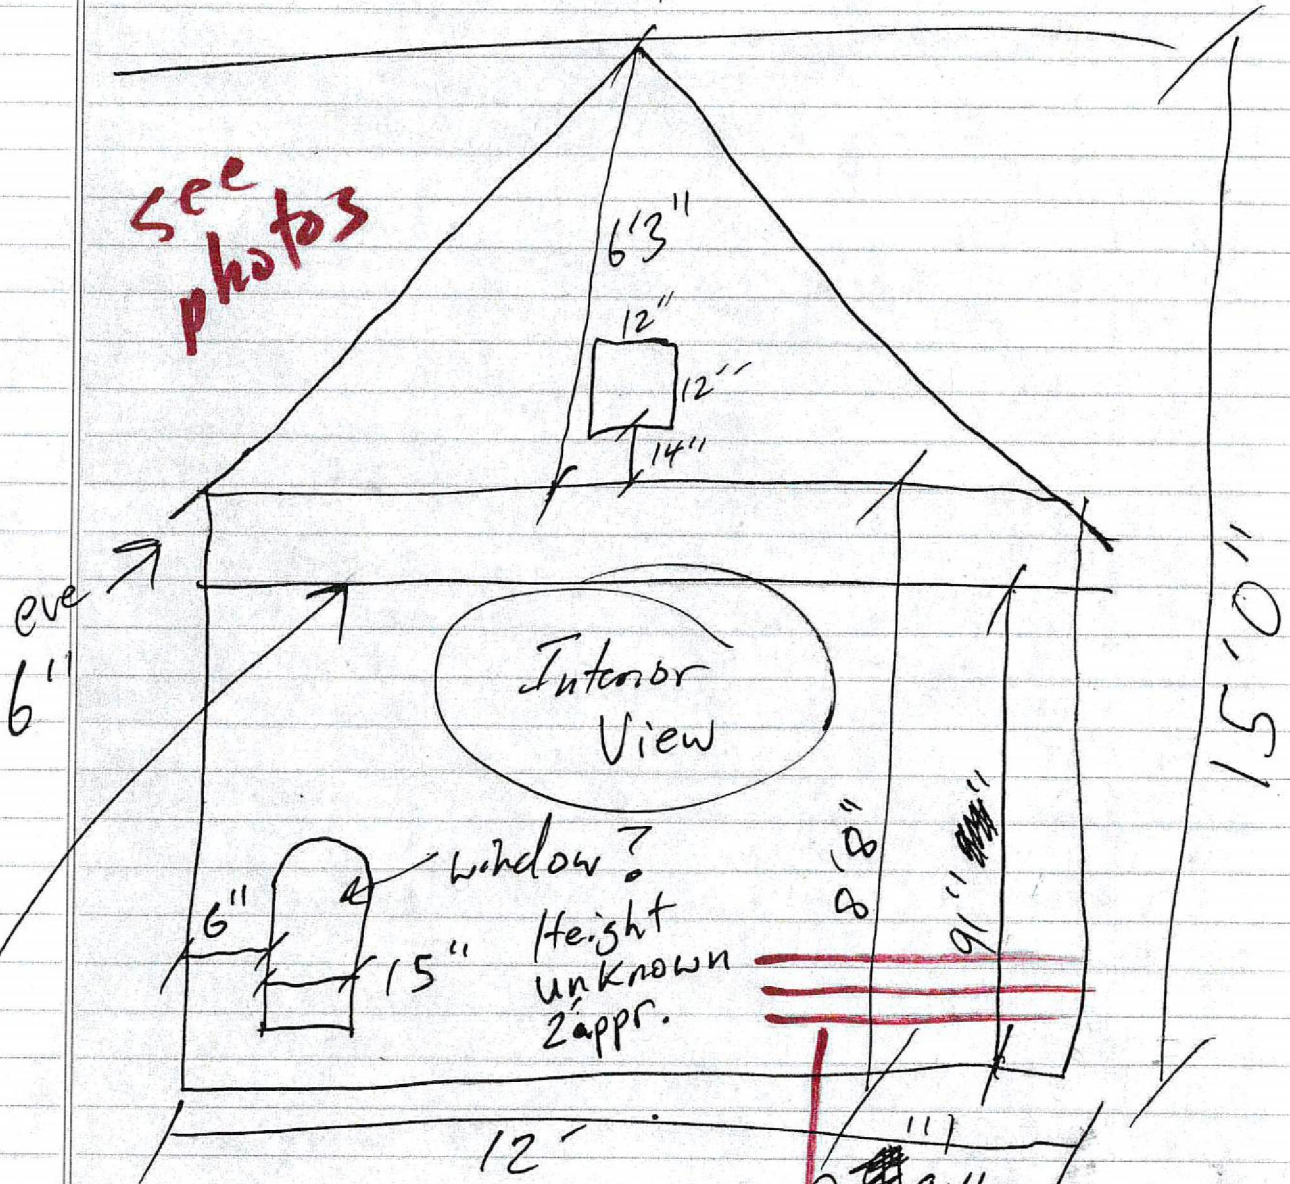 see
photos
6'3"
12"
12"
14"
eve
6"
Interior
View
15'0"
8'8"
91"
window?
Height
unknown
2' appr.
6"
15"
12'